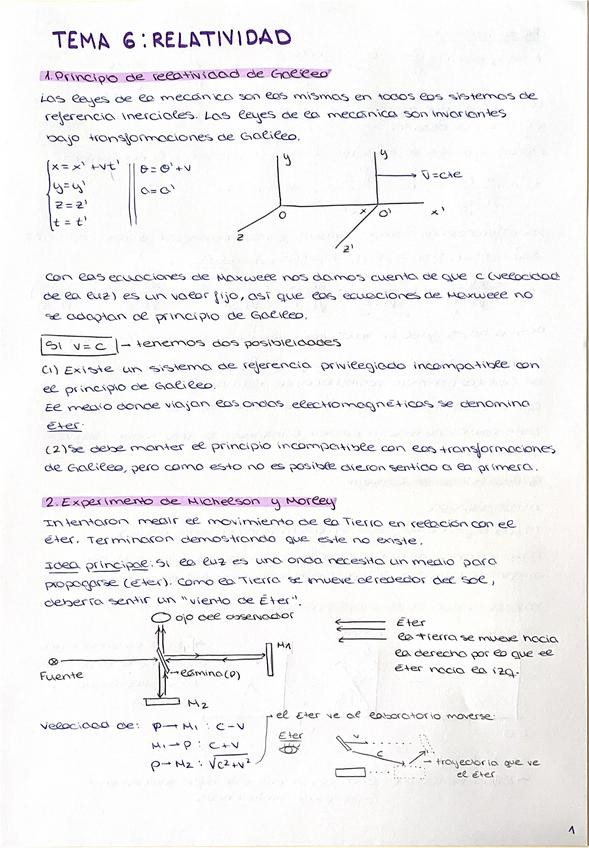 TEMA 6: RELATIVIDAD
1. Principio de relatividad de Galileo
Las leyes de la mecánica son las mismas en todos los sistemas de
referencia inerciales. Las leyes de la mecánica son invariantes
bajo transformaciones de Galileo.
x = x' + vt'
y = y'
z = z'
t = t'
θ = θ' + v
a = a'
y
y
v̄ = cte
O
x
O'
x'
z
z'
Con las ecuaciones de Maxwell nos damos cuenta de que c (velocidad
de la luz) es un valor fijo, así que las ecuaciones de Maxwell no
se adaptan al principio de Galileo.
Si v = c → tenemos dos posibilidades
(1) Existe un sistema de referencia privilegiado incompatible con
el principio de Galileo.
El medio donde viajan las ondas electromagnéticas se denomina
éter.
(2) Se debe manter el principio incompatible con las transformaciones
de Galileo, pero como esto no es posible dieron sentido a la primera.
2. Experimento de Michelson y Morley
Intentaron medir el movimiento de la Tierra en relación con el
éter. Terminaron demostrando que este no existe.
Idea principal: Si la luz es una onda necesita un medio para
propagarse (éter). Como la Tierra se mueve alrededor del Sol,
debería sentir un "viento de Éter".
ojo del observador
M1
Fuente
lámina (P)
M2
Éter
la tierra se mueve hacia
la derecha por lo que el
éter hacia la izq.
Velocidad de: P → M1 : C - V
M1 → P : C + V
P → M2 : √C² + V²
el Eter ve al laboratorio moverse:
Eter
v
c
→ trayectoria que ve
el éter
1